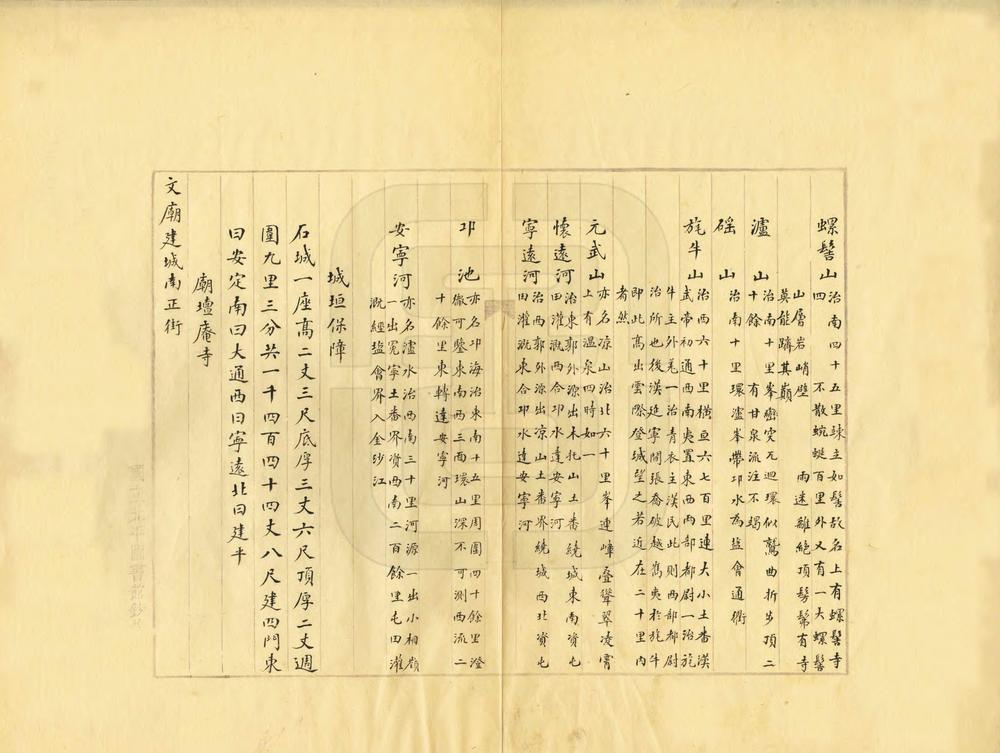 螺髻山
治南四十五里竦主如髻故名上有螺髻寺
四　不散蜿蜒百里外又有一大螺髻
山層岩峭壁　雨迷離絕頂髣髴有寺
莫能躋其巔
瀘　山
治南十里峯巒突兀迴環似鷲曲折步頂二
十餘　有甘泉流注不竭
磘　山
治南十里環瀘峯帶邛水為盐會通衢
旄牛山
治西六十里橫亘六七百里連大小土番漢
武帝初通西南夷置東西兩部都尉一治旄
牛主外羌一治青衣主漢民此則西部都尉
治所也後漢延寧間張喬破越嶲夷於旄牛
即此高出雲際登城望之若近在二十里內
者然
元武山
亦名凉山治北六十里峯連嶂疊聳翠凌霄
上有溫泉四時如一
懷遠河
治東郭外源出未托山土番　繞城東南資屯
田灌溉西合邛水達安寧河
寧遠河
治西郭外源出凉山土番界　繞城西北資屯
田灌溉東合邛水達安寧河
邛　池
亦名邛海治東南十五里周圍四十餘里澄
徹可鑒東南西三面環山深不可測西流二
十餘里東轉達安寧河
安寧河
亦名瀘水治西南三十里河源一出小相嶺
一出冕寧土番界資西南二百餘里屯田灌
溉經盐會界入金沙江
城垣保障
石城一座高二丈三尺底厚三丈六尺頂厚二丈週
圍九里三分共一千四百四十丈八尺建四門東
曰安定南曰大通西曰寧遠北曰建平
廟壇庵寺
文廟建城南正街